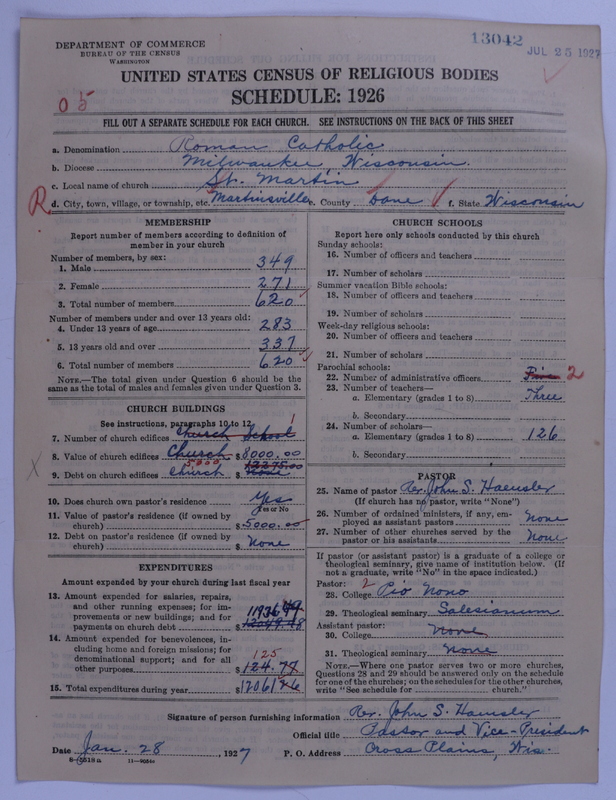 13042
JUL 25 1927
DEPARTMENT OF COMMERCE
BUREAU OF THE CENSUS
WASHINGTON
UNITED STATES CENSUS OF RELIGIOUS BODIES
SCHEDULE: 1926
0 5
FILL OUT A SEPARATE SCHEDULE FOR EACH CHURCH. SEE INSTRUCTIONS ON THE BACK OF THIS SHEET
a. Denomination Roman Catholic
b. Diocese Milwaukee, Wisconsin.
c. Local name of church St. Martin
R d. City, town, village, or township, etc. Martinsville e. County Dane f. State Wisconsin
MEMBERSHIP
Report number of members according to definition of member in your church
Number of members, by sex:
1. Male 349
2. Female 271
3. Total number of members 620
Number of members under and over 13 years old:
4. Under 13 years of age 283
5. 13 years old and over 337
6. Total number of members 620
NOTE.—The total given under Question 6 should be the same as the total of males and females given under Question 3.
CHURCH BUILDINGS
See instructions, paragraphs 10 to 12
7. Number of church edifices Church School 1
8. Value of church edifices Church $ 8000.00
9. Debt on church edifices Church 5000 $ None
10. Does church own pastor's residence Yes
Yes or No
11. Value of pastor's residence (if owned by church) $ 5000.00
12. Debt on pastor's residence (if owned by church) $ None
EXPENDITURES
Amount expended by your church during last fiscal year
13. Amount expended for salaries, repairs, and other running expenses; for improvements or new buildings; and for payments on church debt 11936.49
14. Amount expended for benevolences, including home and foreign missions; for denominational support; and for all other purposes 125 $ 124.77
15. Total expenditures during year $ 12061.26
CHURCH SCHOOLS
Report here only schools conducted by this church
Sunday schools:
16. Number of officers and teachers
17. Number of scholars
Summer vacation Bible schools:
18. Number of officers and teachers
19. Number of scholars
Week-day religious schools:
20. Number of officers and teachers
21. Number of scholars
Parochial schools:
22. Number of administrative officers 2
23. Number of teachers—
a. Elementary (grades 1 to 8) Three
b. Secondary
24. Number of scholars—
a. Elementary (grades 1 to 8) 126
b. Secondary
PASTOR
25. Name of pastor Rev. John S. Haeusler
(If church has no pastor, write "None")
26. Number of ordained ministers, if any, employed as assistant pastors None
27. Number of other churches served by the pastor or his assistants None
If pastor (or assistant pastor) is a graduate of a college or theological seminary, give name of institution below. (If not a graduate, write "No" in the space indicated.)
Pastor: 2
28. College Pio Nono
29. Theological seminary Salesianum
Assistant pastor:
30. College None
31. Theological seminary None
NOTE.—Where one pastor serves two or more churches, Questions 28 and 29 should be answered only on the schedule for one of the churches; on the schedules for the other churches, write "See schedule for church."
Signature of person furnishing information Rev. John S. Haeusler
Official title Pastor and Vice-President
Date Jan. 28, 1927 P. O. Address Cross Plains, Wis.
8—5518a 11—9054a